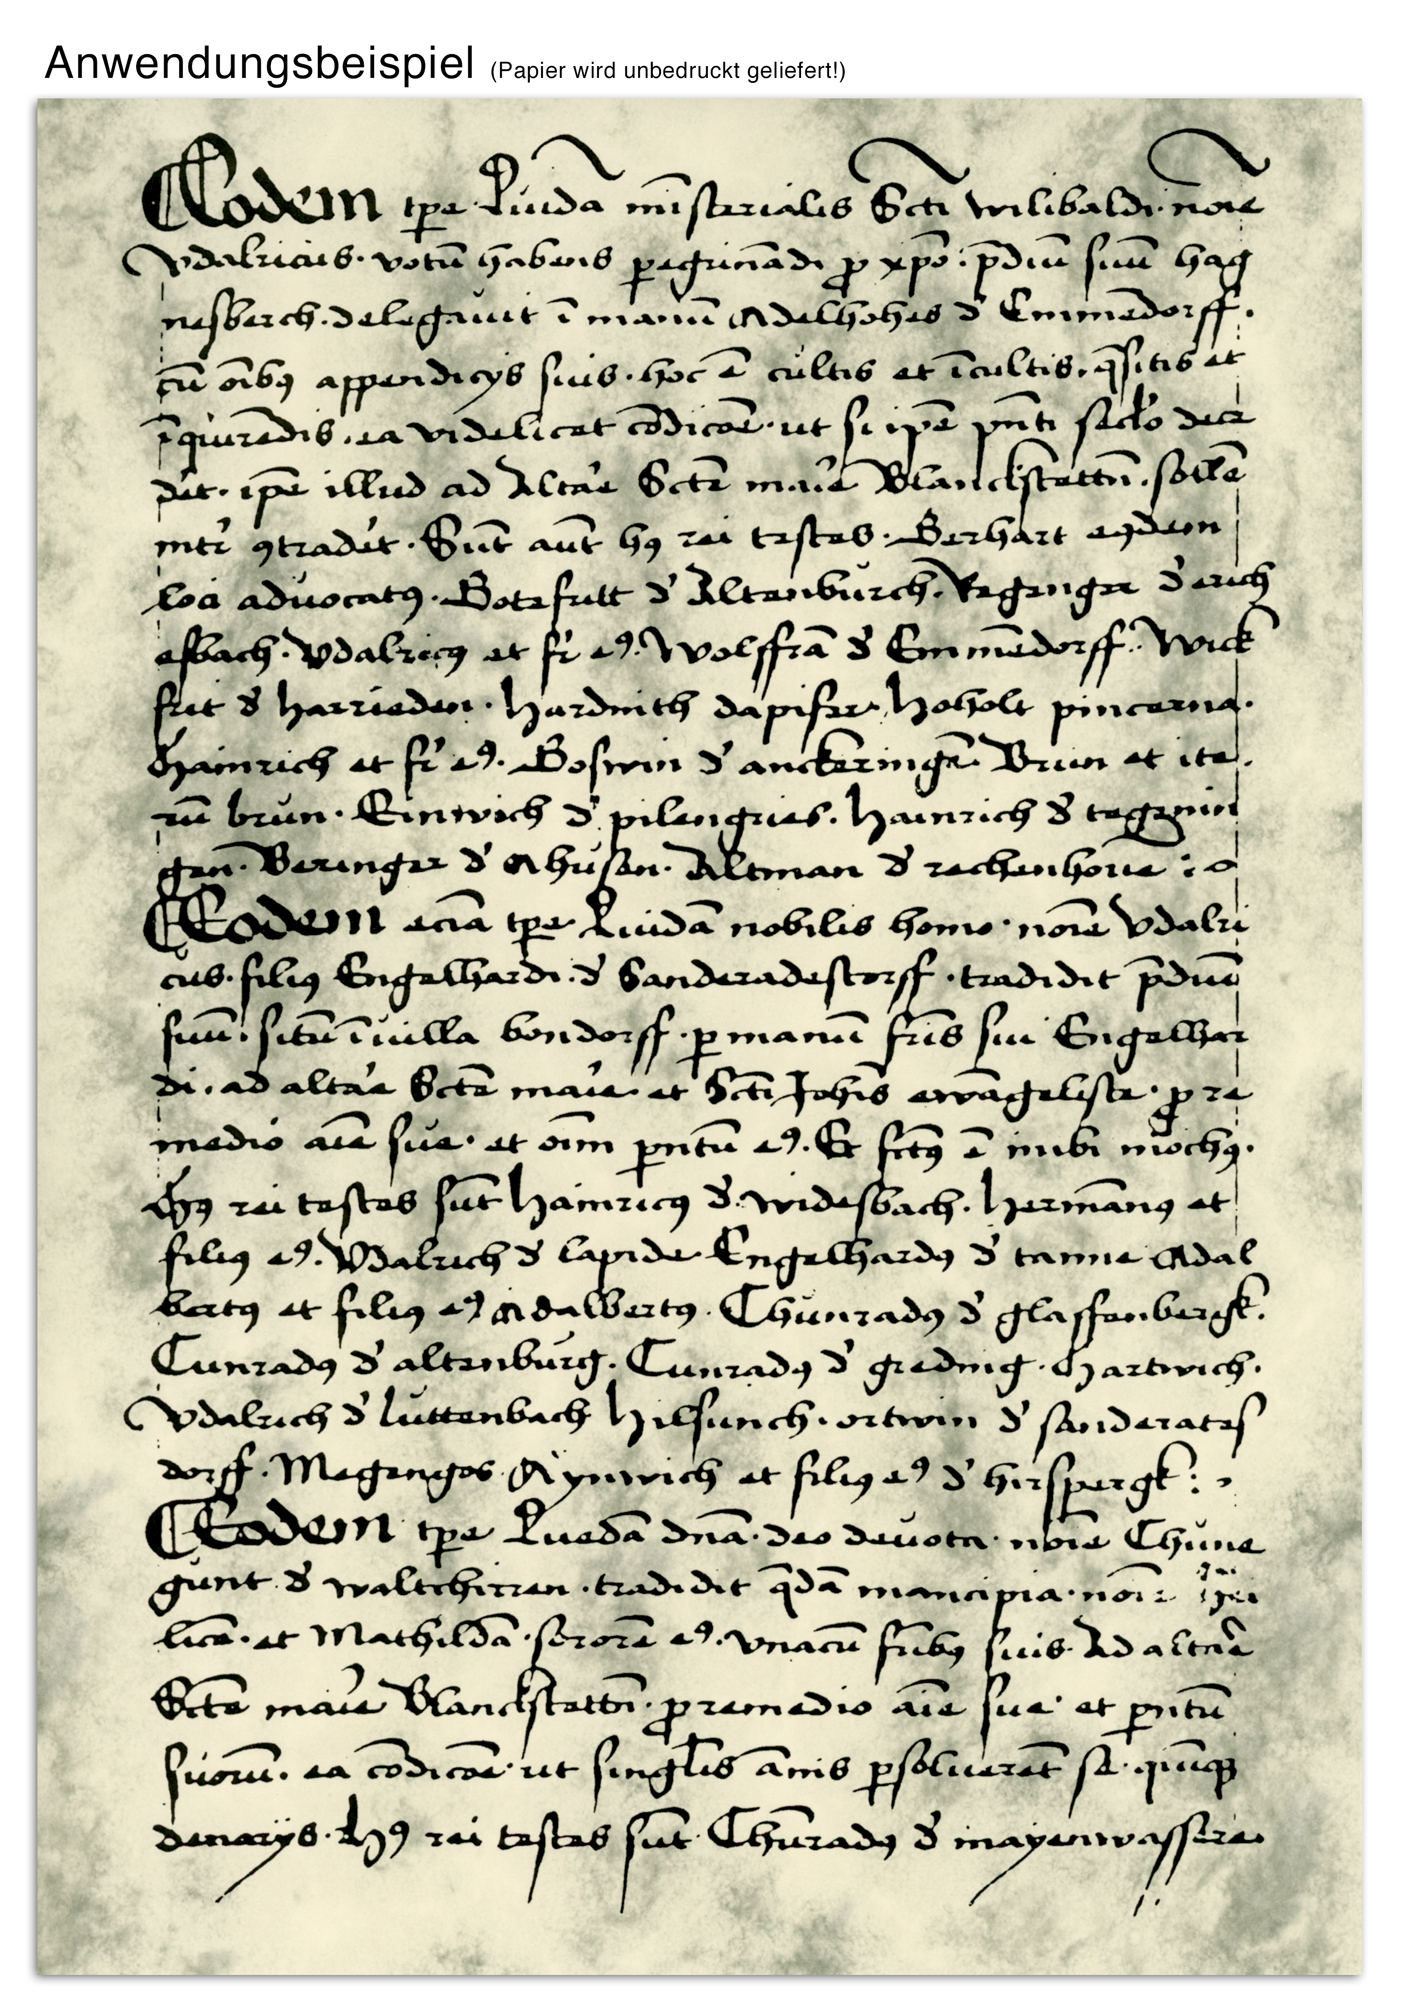 Anwendungsbeispiel (Papier wird unbedruckt geliefert!)
Eodem tp̄e Quidā mīsterialis Scti wilibaldi· noīe
Vdalricus· votū habens ꝑegrinādi ꝓ xp̄o· p̄diū suū hag
nesberch· delegauit ī manū Adelhohes d' Emmēdorff·
cū oībꝯ appendicijs suis· hoc ē cultis et īcultis· q̄sitis et
ea videlicet cōdicōe· ut si ip̄e pn̄ti sec̄lo dece
det· ip̄e illud ad Altāe Sctē maīe Blanckstettn̄· sollē
mīt ꝯtradēt· Sūt aūt hꝯ rei testes· Berhart eꝯdem
loci aduocatꝯ· Botefritt d' Altenburch· Regenger d' erich
esbach· Vdalricꝯ et fr̄ eꝯ· Wolffrā d' Emmēdorff· Wick
frit d' Harrieden· Hardnith dapifer· Hoholt pincerna·
Hainrich et fr̄ eꝯ· Boswin d' anckeringē· Brun et ite·
rū brun· Einwich d' pilengries· Hainrich d' tegrnin
gen· Beringer d' Ahusen· Altman d' rechenhoue :
Eodem eciā tp̄e Quidā nobilis homo· noīe Vdalri
cus· filiꝯ Engelhardi· d' Sanderadestorff· tradidit p̄diū
suū· sitū ī uilla bondorff· ꝑ manū fr̄is sui Engelhar
di· ad altāe Sctē maīe· et Scti Johīs ewāgeliste· ꝓ re
medio aīe sue· et oīm pn̄tū eꝯ· Et fctꝯ ē inibi mōchꝯ·
Hꝯ rei testes sūt Hainricꝯ d' widesbach· Hermānꝯ et
filiꝯ eꝯ· Vdalrich d' lapide· Engelhardꝯ d' tanne Adal
bertꝯ et filiꝯ eꝯ Adalbertꝯ· Chunradꝯ d' glassenbergk·
Cunradꝯ d' altenburg· Cunradꝯ d' greding· Hartwich·
Vdalrich d' luttenbach Hilsunch· ortwin d' sanderates
dorff· Megengos· Aynwich et filiꝯ eꝯ d' hirspergk :
Eodem tp̄e Quedā dn̄a· deo deuota· noīe Chune
gunt d' waltchirren· tradidit q̄dā mancipia· noīe
licē· et Mathildā· sororē eꝯ· vnacū fr̄ibꝯ suis· Ad altāe
Sctē maīe Blanckstettn̄· ꝓ remedio aīe sue· et pn̄tū
suorū· ea cōdicōe· ut singl̄is ānis ꝑsoluerēt se· quīqꝫ
denarijs· Hꝯ rei testes sūt· Chūradꝯ d' mayenwasseren